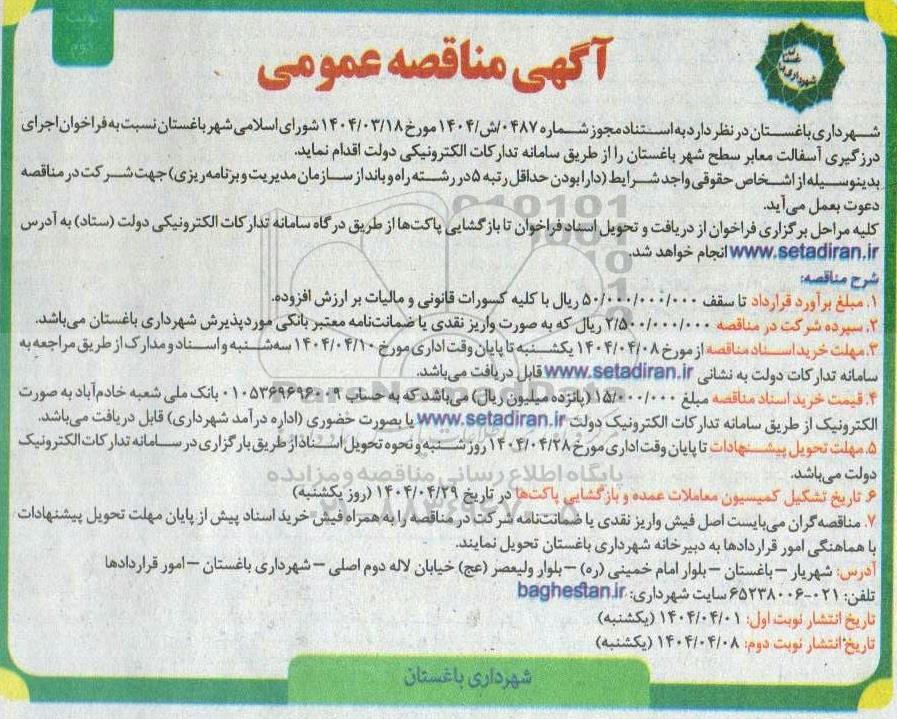 نوبت دوم
شهرداری باغستان
آگهی مناقصه عمومی
شهرداری باغستان در نظر دارد به استناد مجوز شماره ۰۴۸۷/ش/۱۴۰۴ مورخ ۱۴۰۴/۰۳/۱۸ شورای اسلامی شهر باغستان نسبت به فراخوان اجرای
درزگیری آسفالت معابر سطح شهر باغستان را از طریق سامانه تدارکات الکترونیکی دولت اقدام نماید.
بدینوسیله از اشخاص حقوقی واجد شرایط (دارا بودن حداقل رتبه ۵ در رشته راه و باند از سازمان مدیریت و برنامه‌ریزی) جهت شرکت در مناقصه
دعوت بعمل می‌آید.
کلیه مراحل برگزاری فراخوان از دریافت و تحویل اسناد فراخوان تا بازگشایی پاکت‌ها از طریق درگاه سامانه تدارکات الکترونیکی دولت (ستاد) به آدرس
www.setadiran.ir انجام خواهد شد.
شرح مناقصه:
۱. مبلغ برآورد قرارداد تا سقف ۵۰/۰۰۰/۰۰۰/۰۰۰ ریال با کلیه کسورات قانونی و مالیات بر ارزش افزوده.
۲. سپرده شرکت در مناقصه ۲/۵۰۰/۰۰۰/۰۰۰ ریال که به صورت واریز نقدی یا ضمانت‌نامه معتبر بانکی مورد پذیرش شهرداری باغستان می‌باشد.
۳. مهلت خرید اسناد مناقصه از مورخ ۱۴۰۴/۰۴/۰۸ یکشنبه تا پایان وقت اداری مورخ ۱۴۰۴/۰۴/۱۰ سه‌شنبه و اسناد و مدارک از طریق مراجعه به
سامانه تدارکات دولت به نشانی www.setadiran.ir قابل دریافت می‌باشد.
۴. قیمت خرید اسناد مناقصه مبلغ ۱۵/۰۰۰/۰۰۰ (پانزده میلیون ریال) می‌باشد که به حساب ۰۱۰۵۳۶۹۶۹۶۰۰۹ بانک ملی شعبه خادم‌آباد به صورت
الکترونیک از طریق سامانه تدارکات الکترونیک دولت www.setadiran.ir یا بصورت حضوری (اداره درآمد شهرداری) قابل دریافت می‌باشد.
۵. مهلت تحویل پیشنهادات تا پایان وقت اداری مورخ ۱۴۰۴/۰۴/۲۸ روز شنبه و نحوه تحویل اسناد از طریق بارگزاری در سامانه تدارکات الکترونیک
دولت می‌باشد.
۶. تاریخ تشکیل کمیسیون معاملات عمده و بازگشایی پاکت‌ها در تاریخ ۱۴۰۴/۰۴/۲۹ (روز یکشنبه)
۷. مناقصه‌گران می‌بایست اصل فیش واریز نقدی یا ضمانت‌نامه شرکت در مناقصه را به همراه فیش خرید اسناد پیش از پایان مهلت تحویل پیشنهادات
با هماهنگی امور قراردادها به دبیرخانه شهرداری باغستان تحویل نمایند.
آدرس: شهریار – باغستان – بلوار امام خمینی (ره) – بلوار ولیعصر (عج) خیابان لاله دوم اصلی – شهرداری باغستان – امور قراردادها
تلفن: ۰۲۱-۶۵۲۳۸۰۰۶ سایت شهرداری: baghestan.ir
تاریخ انتشار نوبت اول: ۱۴۰۴/۰۴/۰۱ (یکشنبه)
تاریخ انتشار نوبت دوم: ۱۴۰۴/۰۴/۰۸ (یکشنبه)
شهرداری باغستان
پایگاه اطلاع رسانی مناقصه و مزایده